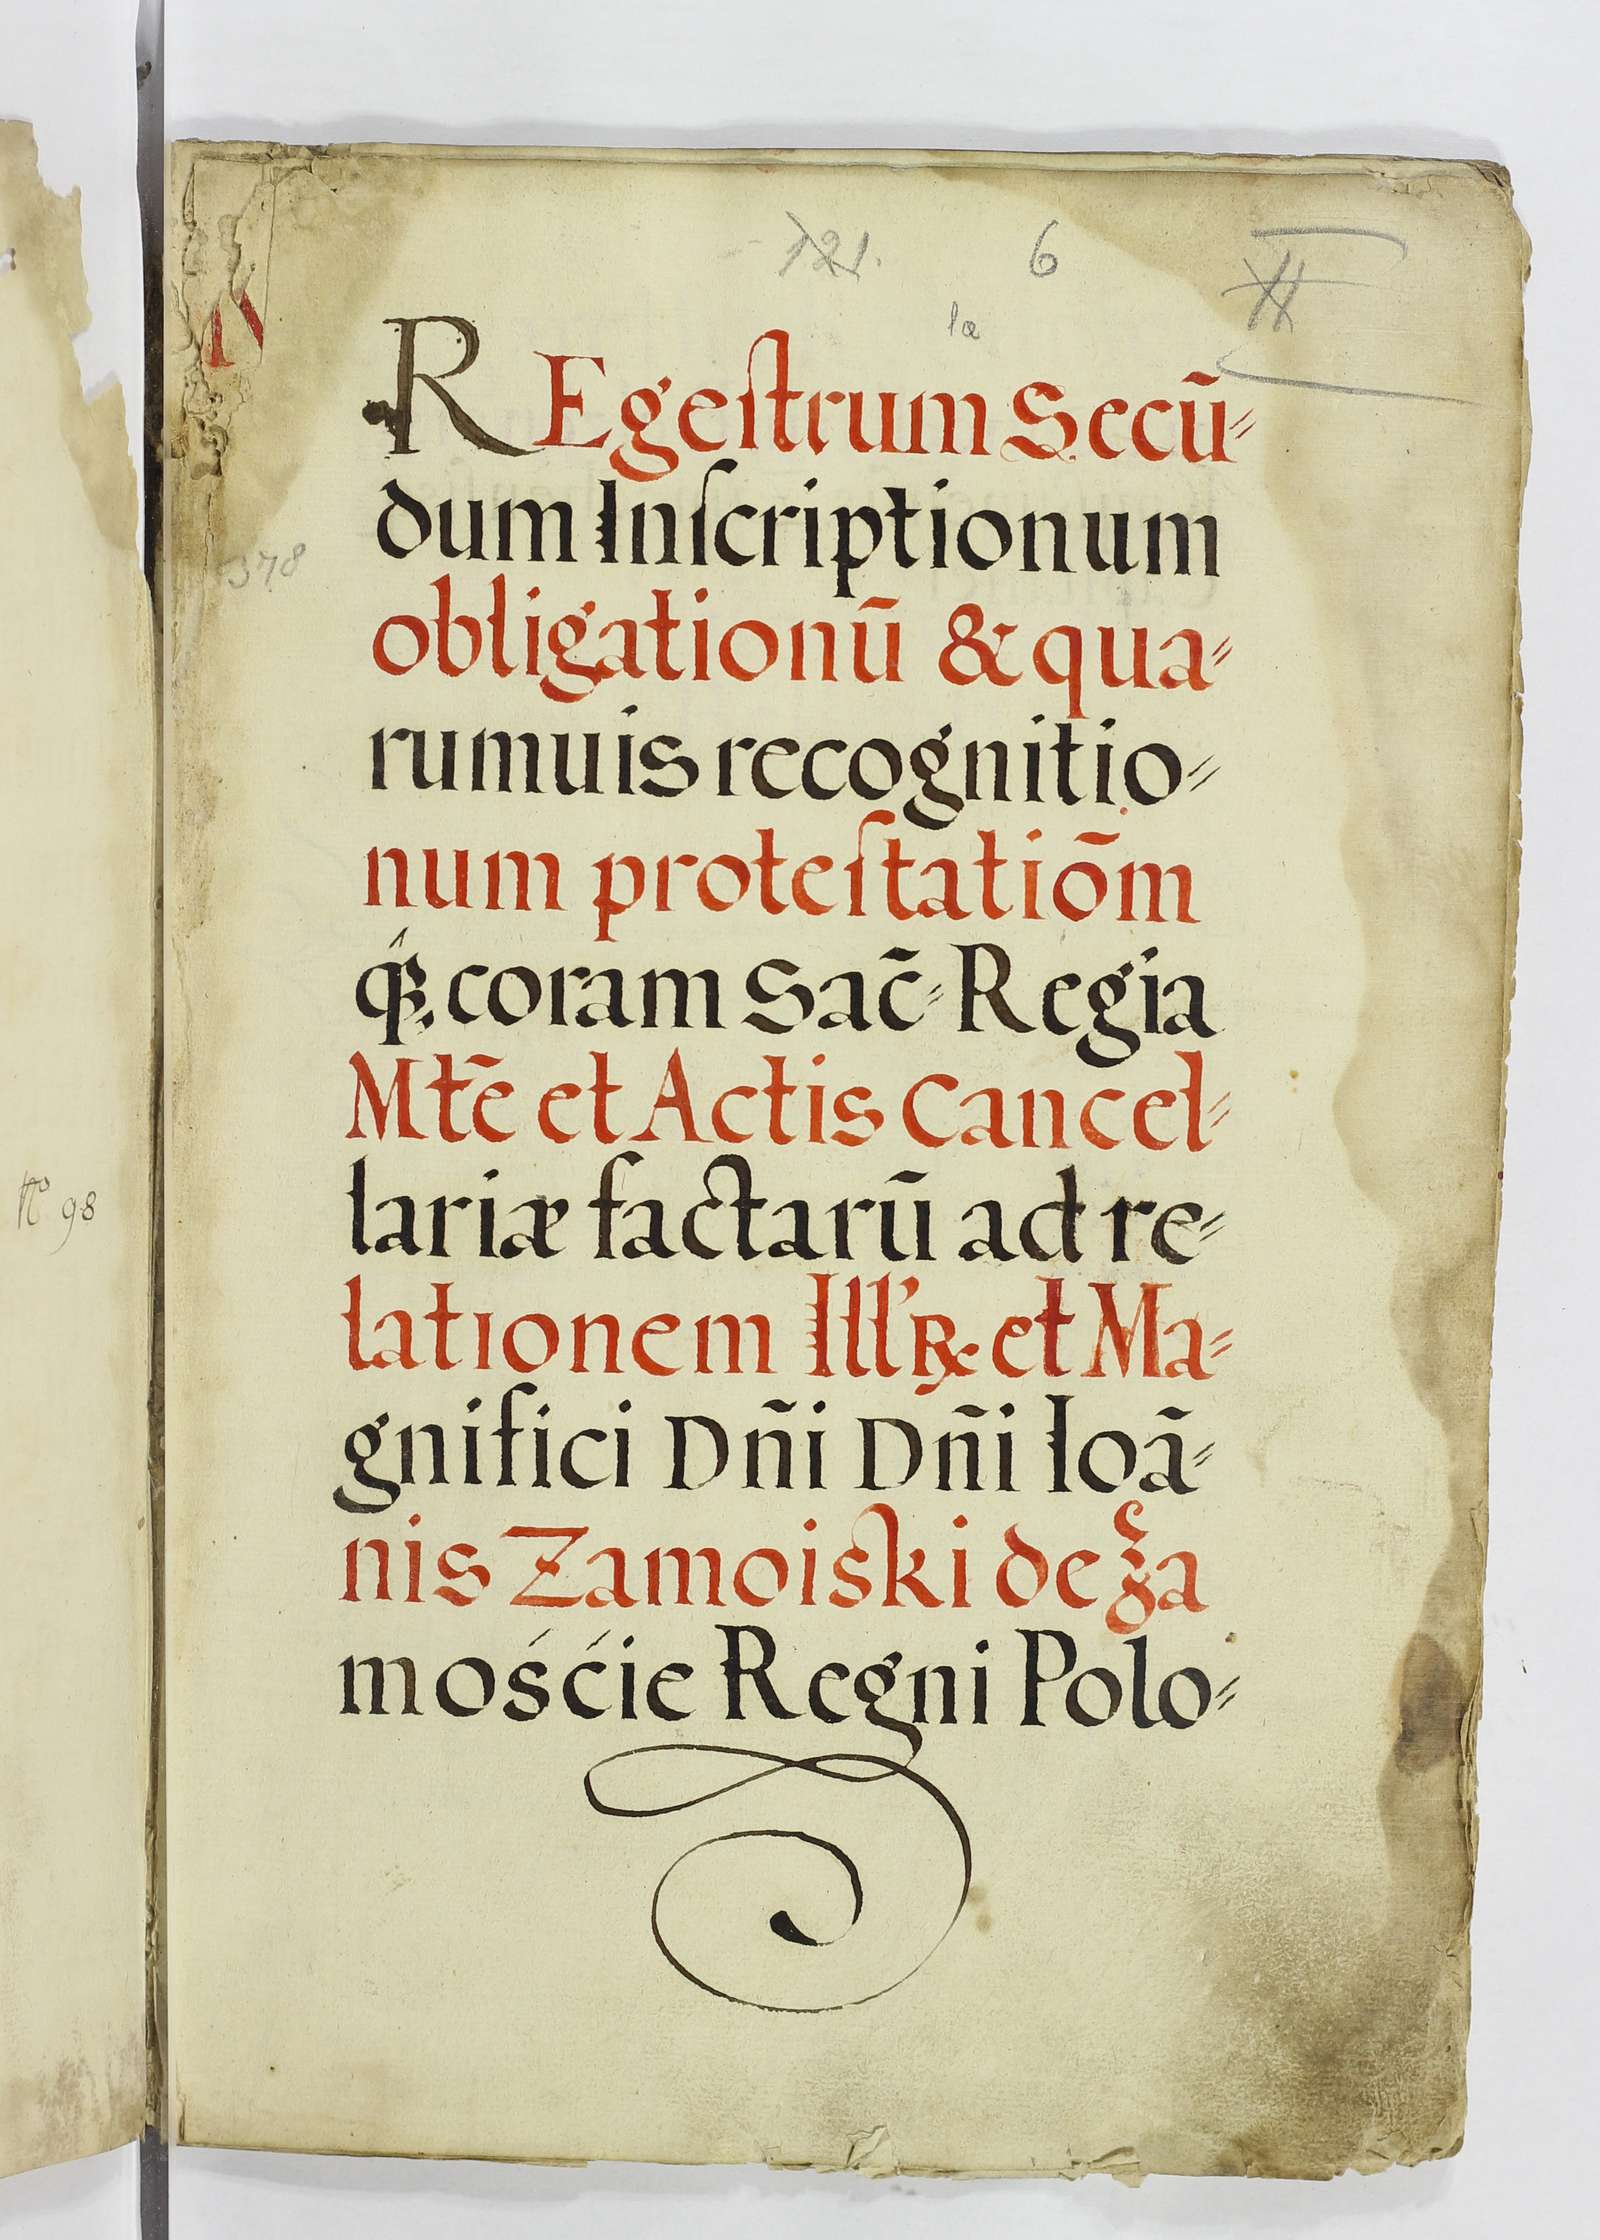 121.
6
la
II
REgeſtrum Secū⸗
dum Inſcriptionum
378
obligationū & qua⸗
rumuis recognitio⸗
num proteſtatiōm
coram Sac̃⸗ Regia
Mtẽ et Actis Cancel⸗
lariæ factarū ad re⸗
Nº 98
lationem Ill' et Ma⸗
gnifici Dñi Dñi Ioã⸗
nis Zamoiski de Za
mośćie Regni Polo⸗